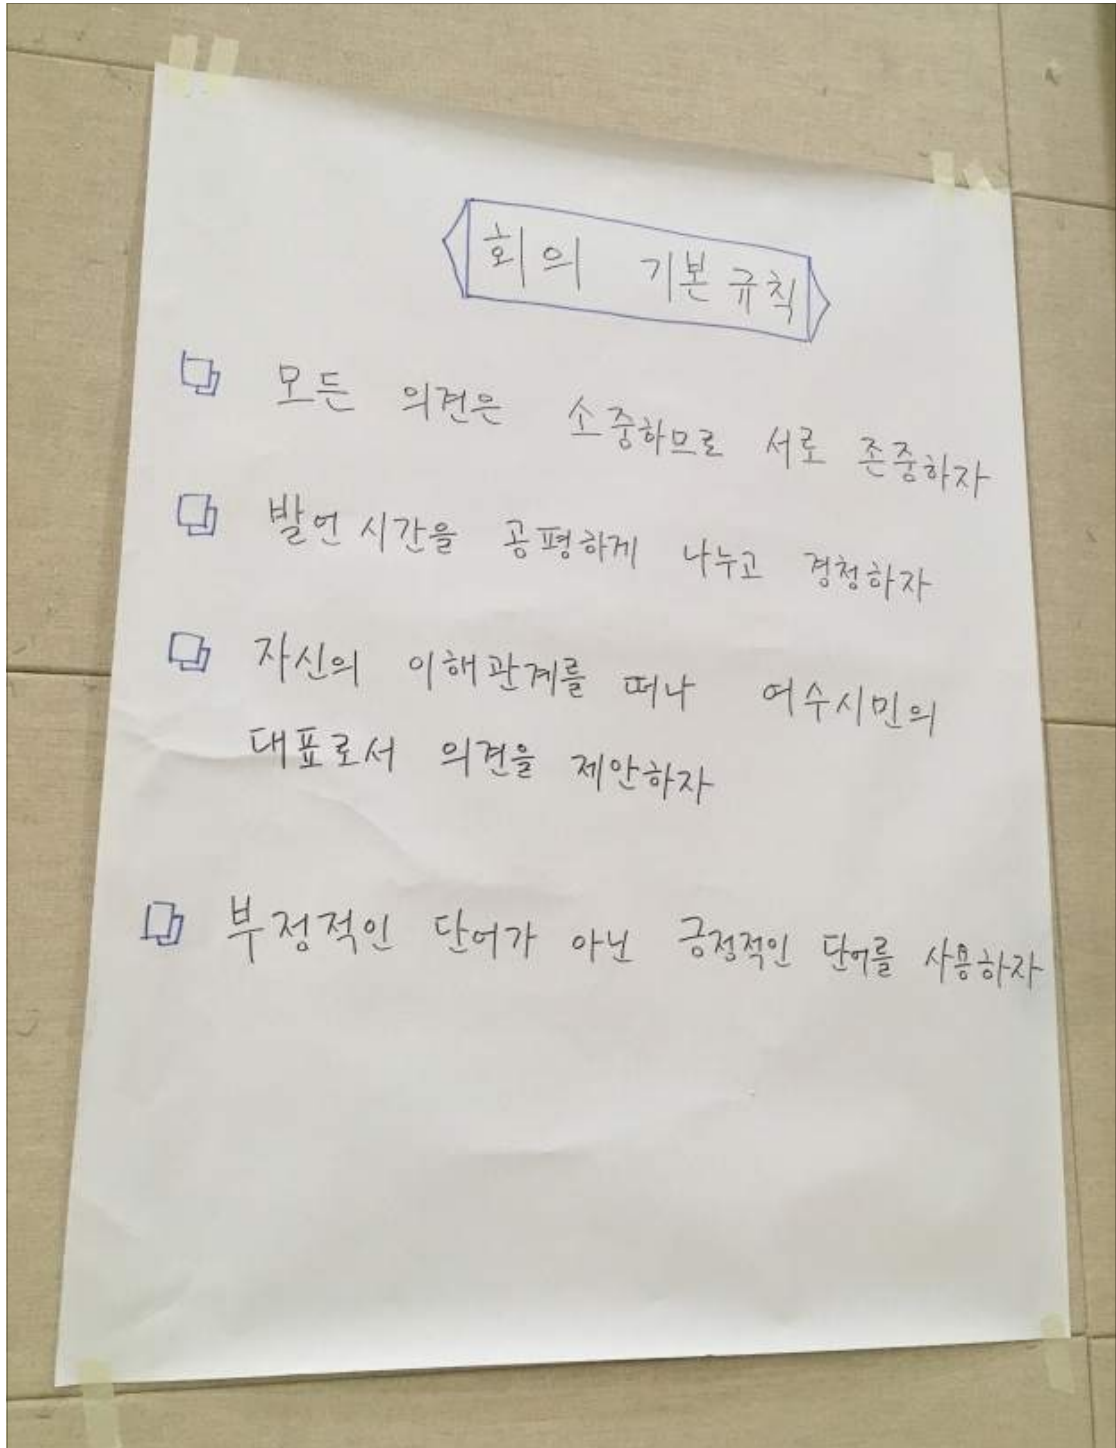 회의 기본규칙
모든 의견은 소중하므로 서로 존중하자
발언 시간을 공평하게 나누고 경청하자
자신의 이해관계를 떠나 여수시민의
대표로서 의견을 제안하자
부정적인 단어가 아닌 긍정적인 단어를 사용하자